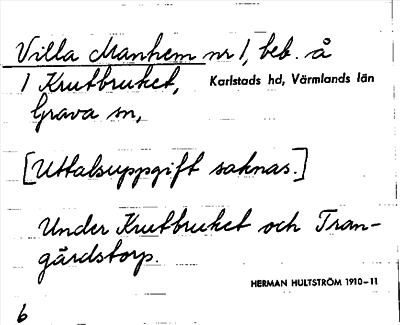 Villa Manhem nr 1, beb. å
1 Krutbruket, Karlstads hd, Värmlands län
Grava sn,
[Uttalsuppgift saknas.]
Under Krutbruket och Tran-
gärdstorp.
HERMAN HULTSTRÖM 1910–11
6